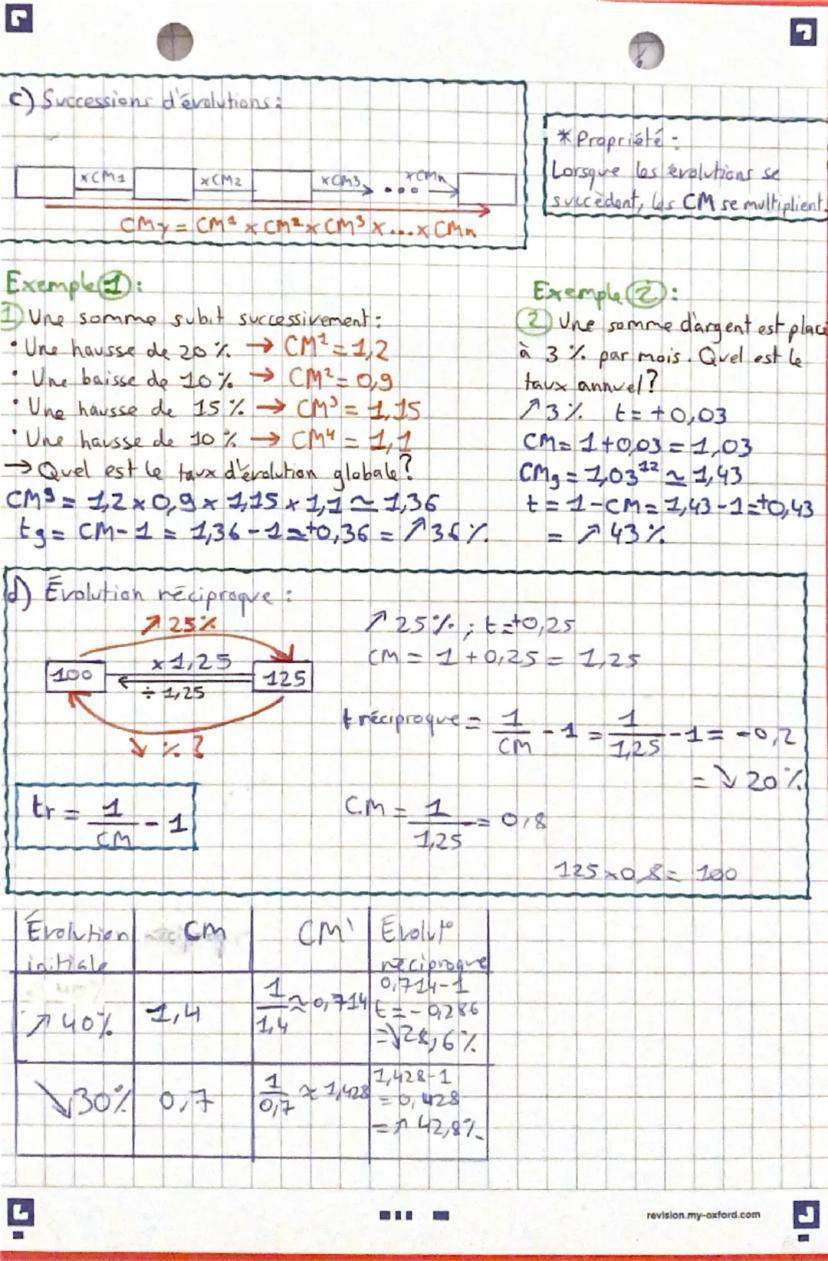 c) Successions d'évolutions :
* Propriété :
Lorsque les évolutions se
succèdent, les CM se multiplient.
xCM1 xCM2 xCM3 ... xCMn
CMγ = CM¹ x CM² x CM³ x ... x CMn
Exemple ① :
① Une somme subit successivement :
• Une hausse de 20 % → CM¹ = 1,2
• Une baisse de 10 % → CM² = 0,9
• Une hausse de 15 % → CM³ = 1,15
• Une hausse de 10 % → CM⁴ = 1,1
→ Quel est le taux d'évolution globale ?
CM⁹ = 1,2 x 0,9 x 1,15 x 1,1 ≃ 1,36
tg = CM - 1 = 1,36 - 1 = +0,36 = ↗ 36 %.
Exemple ② :
② Une somme d'argent est placé
à 3 % par mois. Quel est le
taux annuel ?
↗ 3 % t = +0,03
CM = 1 + 0,03 = 1,03
CMg = 1,03¹² ≃ 1,43
t = 1 - CM = 1,43 - 1 = +0,43
= ↗ 43 %
d) Évolution réciproque :
↗ 25%
100 x 1,25 125
÷ 1,25
↘ % ?
tr = 1/CM - 1
↗ 25 % ; t = +0,25
CM = 1 + 0,25 = 1,25
t réciproque = 1/CM - 1 = 1/1,25 - 1 = -0,2
= ↘ 20 %
CM = 1/1,25 = 0,8
125 x 0,8 = 100
Évolution initiale CM CM' Évolut° réciproque
↗ 40% 1,4 1/1,4 ≈ 0,714 0,714 - 1
t = - 0,286
= ↘ 28,6 %
↘ 30% 0,7 1/0,7 ≈ 1,428 1,428 - 1
= 0,428
= ↗ 42,8 %
revision.my-oxford.com